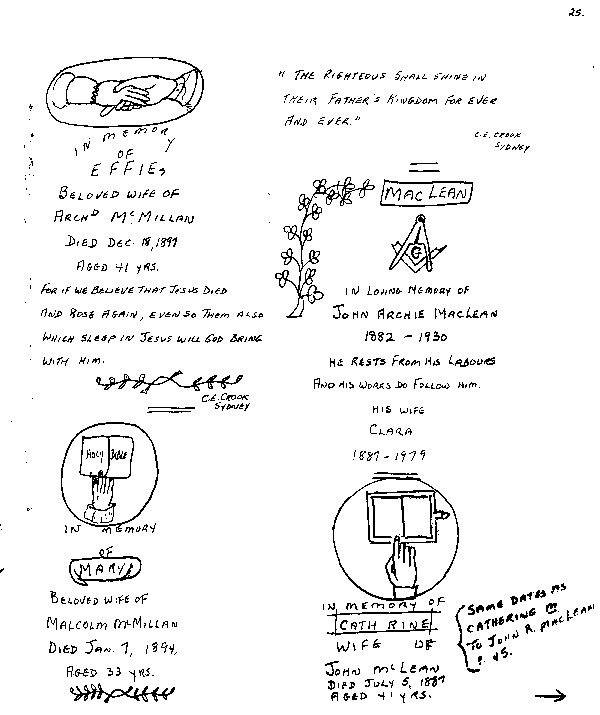 25.
IN MEMORY
OF
EFFIE,
BELOVED WIFE OF
ARCHD MCMILLAN
DIED DEC. 18, 1897
AGED 41 YRS.
FOR IF WE BELIEVE THAT JESUS DIED
AND ROSE AGAIN, EVEN SO THEM ALSO
WHICH SLEEP IN JESUS WILL GOD BRING
WITH HIM.
C.E. CROOK
SYDNEY
HOLY BIBLE
IN MEMORY
OF
MARY
BELOVED WIFE OF
MALCOLM MCMILLAN
DIED JAN. 7, 1894,
AGED 33 YRS.
" THE RIGHTEOUS SHALL SHINE IN
THEIR FATHER'S KINGDOM FOR EVER
AND EVER."
C.E. CROOK
SYDNEY
MACLEAN
G
IN LOVING MEMORY OF
JOHN ARCHIE MACLEAN
1882 - 1930
HE RESTS FROM HIS LABOURS
AND HIS WORKS DO FOLLOW HIM.
HIS WIFE
CLARA
1887 - 1979
IN MEMORY OF
CATHRINE
WIFE OF
JOHN MCLEAN
DIED JULY 5, 1887
AGED 41 YRS.
SAME DATES AS
CATHERINE
TO JOHN R. MACLEAN
P. 45.